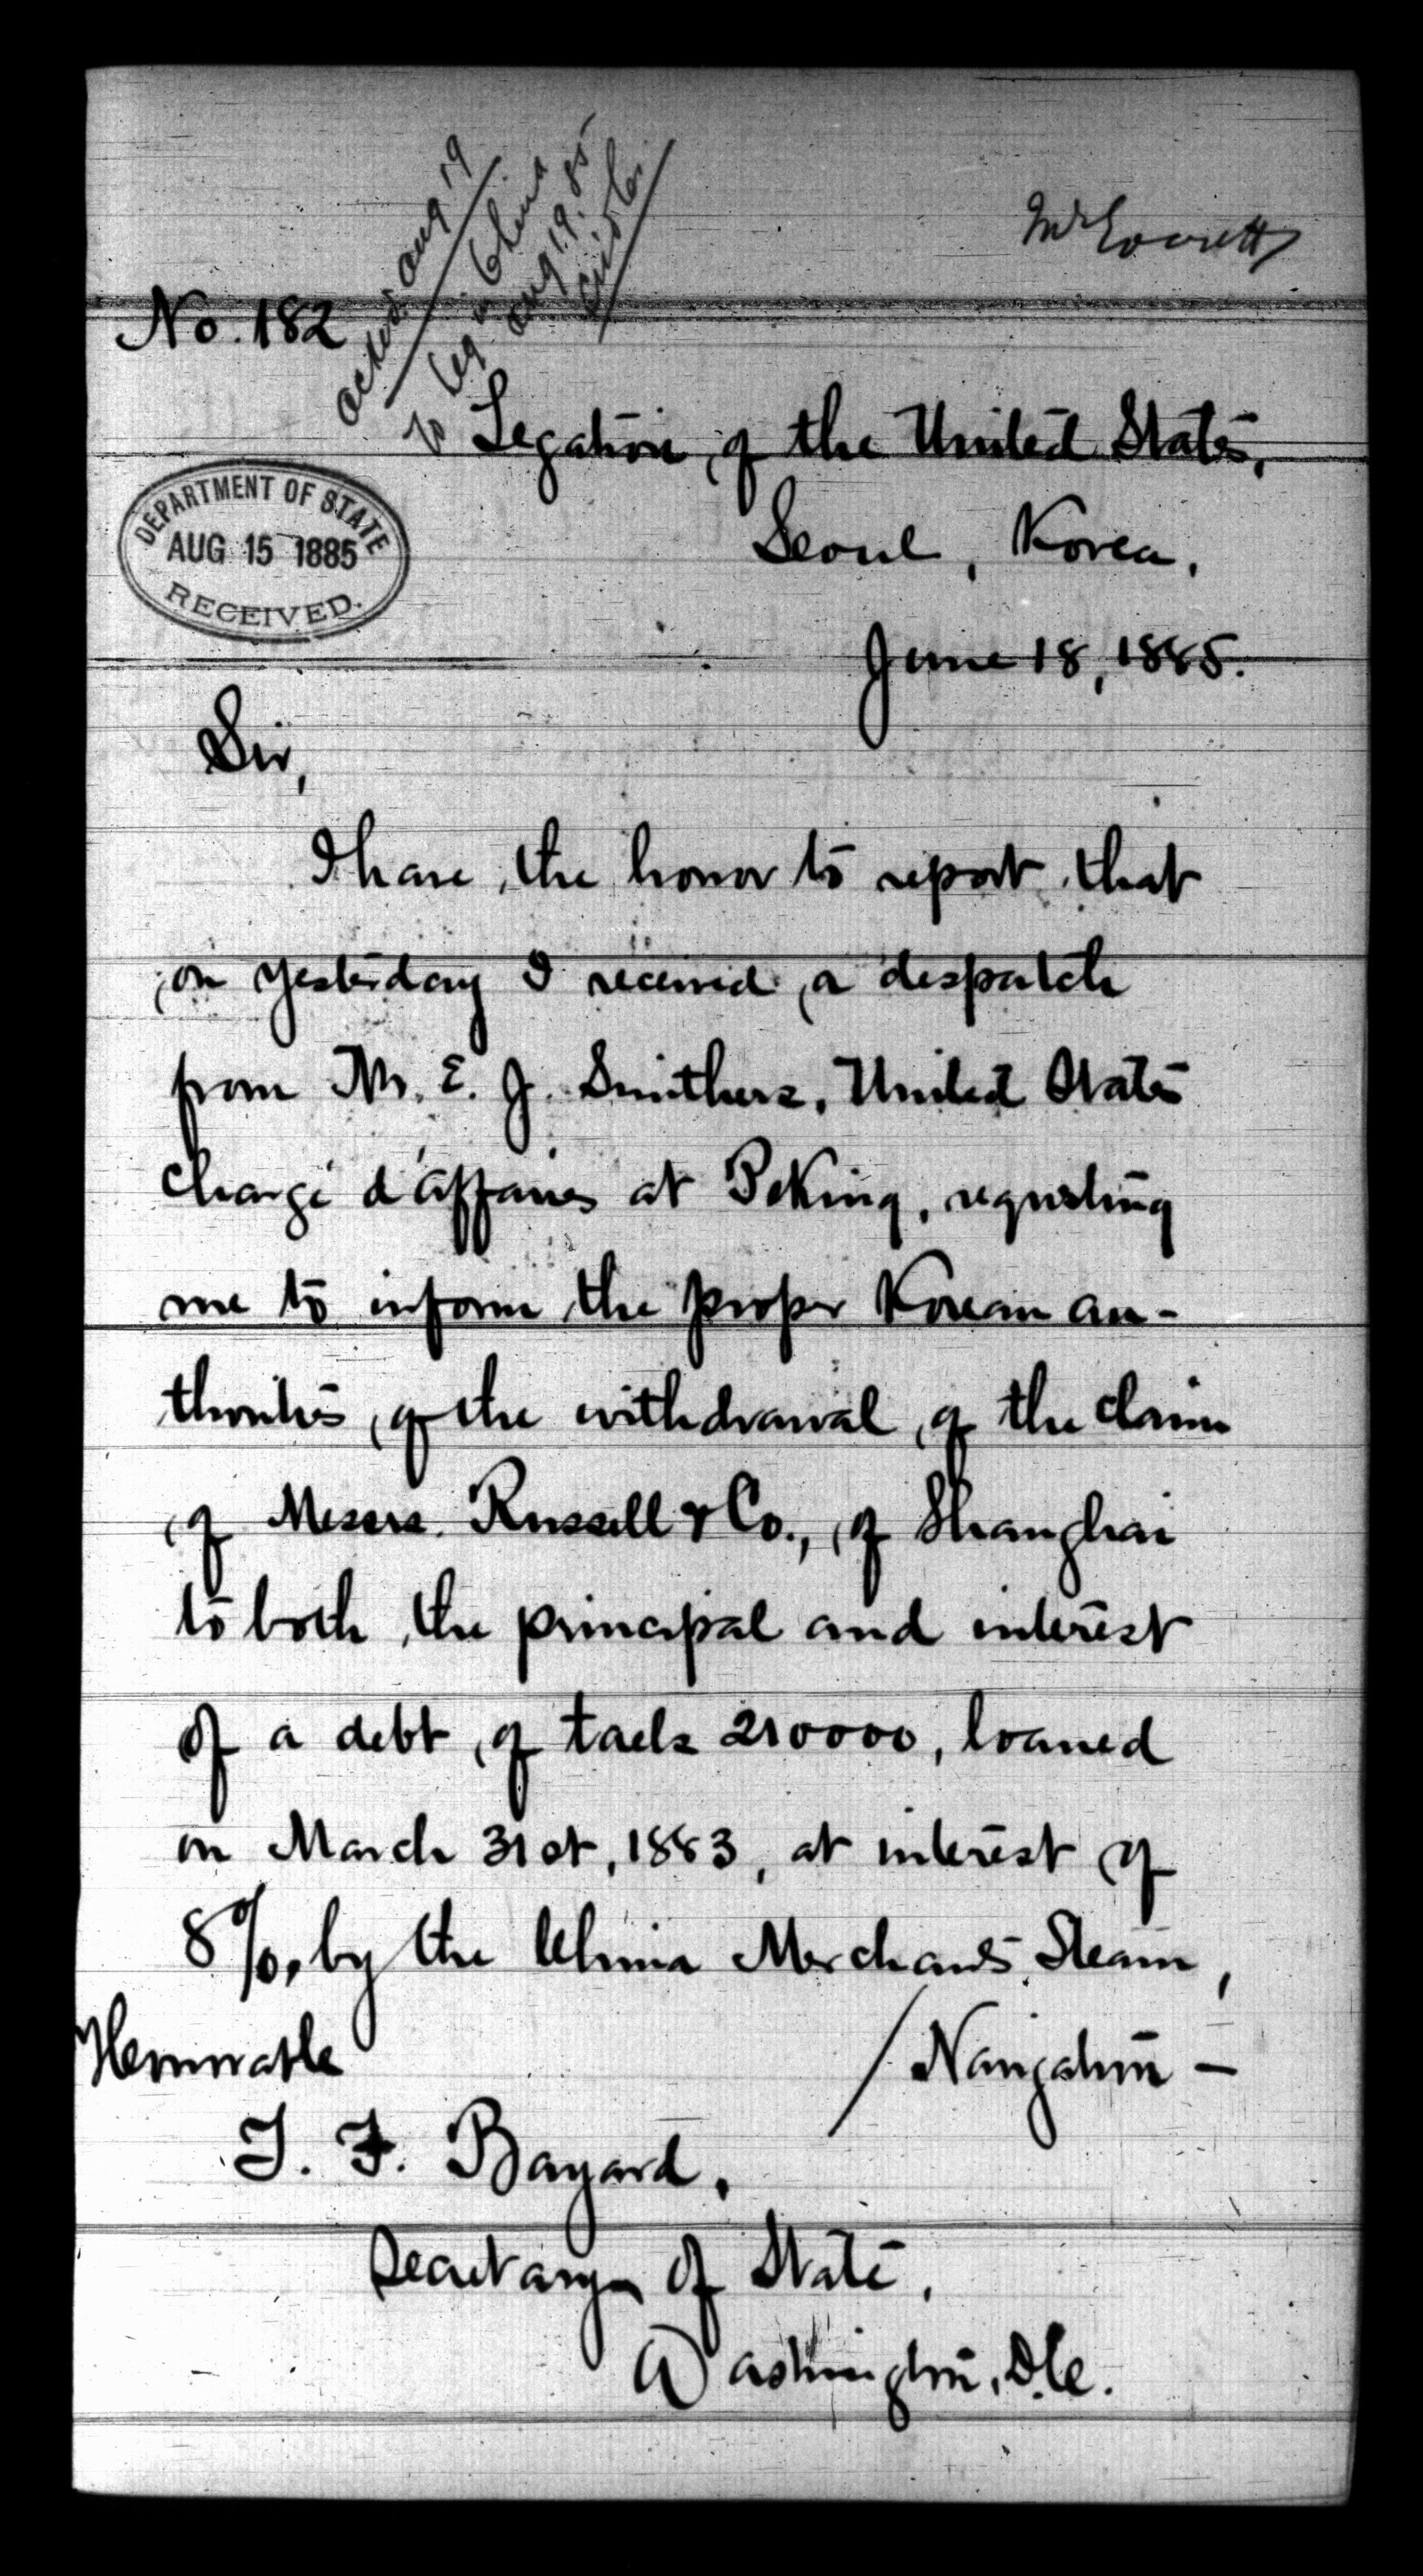 Mr Everett
ackd. Aug 19
To Leg. in China
Aug 19. 85
No. 182
Legation of the United States,
Seoul, Korea,
June 18, 1885.
DEPARTMENT OF STATE
AUG 15 1885
RECEIVED.
Sir,
I have the honor to report that
on yesterday I received a despatch
from Mr. E. J. Smithers, United States
Chargé d'Affaires at Peking, requesting
me to inform the proper Korean au-
thorities of the withdrawal of the claim
of Messrs. Russell & Co., of Shanghai
to both the principal and interest
of a debt of taels 210000, loaned
on March 31st, 1883, at interest of
8%, by the China Merchants Steam
/ Navigation -
Honorable
T. F. Bayard,
Secretary of State,
Washington, D.C.